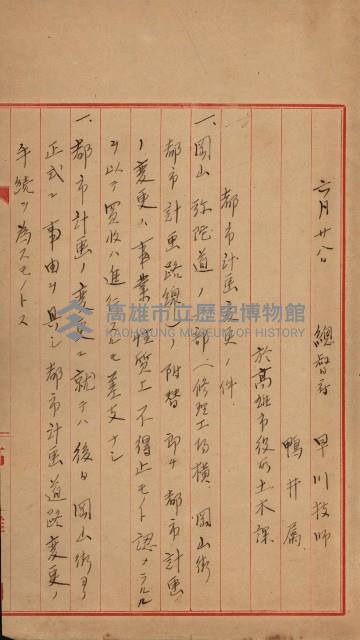 六月廿八日　總督府　早川技師
鴨井属
於高雄市役所土木課
都市計画変更ノ件
一、岡山弥陀道ノ一部（修理工場横岡山街
都市計画路線）ノ附替即チ都市計画
ノ変更ハ事業ノ性質上不得止モノト認メラルル
ヲ以テ買收ハ進行スルモ差支ナシ
一、都市計画ノ変更ニ就テハ後日岡山街ヨリ
正式ニ事由ヲ具シ都市計画道路変更ノ
手続ヲ為スモノトス
高雄市立歷史博物館
KAOHSIUNG MUSEUM OF HISTORY